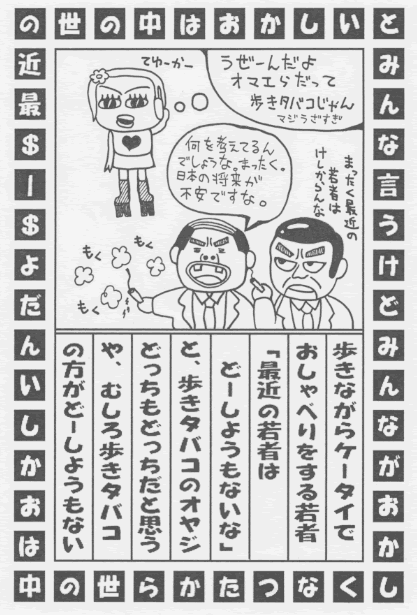 最近の世の中はおかしいと
みんな言うけどみんながおかし
くなつたから世の中
はおかしいんだよ$ー$
てゆーかー
うぜーんだよ
オマエらだって
歩きタバコじゃん
マジうざすぎ
まったく最近の
若者は
けしからんな
何を考えてるん
でしょうな。まったく。
日本の将来が
不安ですな。
もく
もく
もく
歩きながらケータイで
おしゃべりをする若者
「最近の若者は
どーしようもないな」
と、歩きタバコのオヤジ
どっちもどっちだと思う
や、むしろ歩きタバコ
の方がどーしようもない